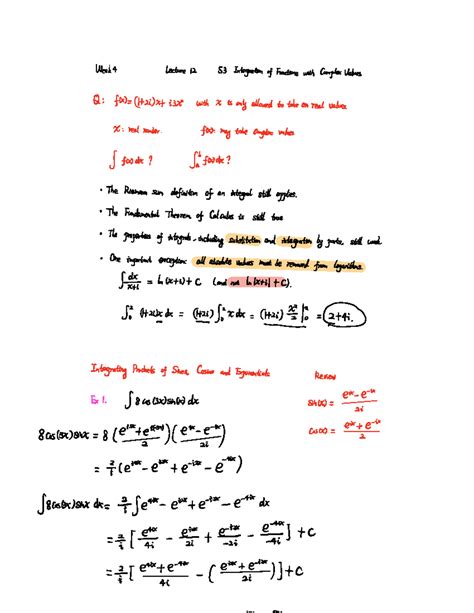 Week 4 Lecture 12 5.3 Integration of Functions with Complex Values
Q: f(x) = (1+2i)x + i3x² with x is only allowed to take on real values
x: real number f(x): may take complex values
∫ f(x) dx ? ∫ₐᵇ f(x) dx ?
• The Riemann sum definition of an integral still applies.
• The Fundamental Theorem of Calculus is still true
• The properties of integrals, including substitution and integration by parts, still work
• One important exception: all absolute values must be removed from logarithms.
∫ dx/(x+i) = ln(x+i) + C (and not ln|x+i| + C).
∫₀² (1+2i)x dx = (1+2i) ∫₀² x dx = (1+2i) x²/2 |₀² = 2+4i.
Integrating Products of Sines, Cosines and Exponentials Review
Ex 1. ∫ 8 cos(3x) sin(x) dx sin(x) = (e^{ix} - e^{-ix})/2i
cos(x) = (e^{ix} + e^{-ix})/2
= 2/i (e^{i4x} - e^{i2x} + e^{-i2x} - e^{-i4x})
= 2/i [e^{4ix}/4i - e^{i2x}/2i + e^{-i2x}/-2i - e^{-4ix}/-4i] + C
= 2/i [(e^{i4x} + e^{-i4x})/4i - ((e^{i2x} + e^{-i2x})/2i)] + C